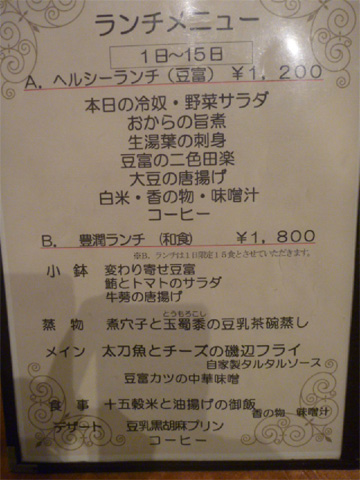 ランチメニュー
1日〜15日
A. ヘルシーランチ(豆富) ¥1,200
本日の冷奴・野菜サラダ
おからの旨煮
生湯葉の刺身
豆富の二色田楽
大豆の唐揚げ
白米・香の物・味噌汁
コーヒー
B. 豊潤ランチ (和食) ¥1,800
※B、ランチは1日限定15食とさせていただきます。
小 鉢 変わり寄せ豆富
鮪とトマトのサラダ
牛蒡の唐揚げ
とうもろこし
蒸 物 煮穴子と玉蜀黍の豆乳茶碗蒸し
メイン 太刀魚とチーズの磯辺フライ
自家製タルタルソース
豆富カツの中華味噌
食 事 十五穀米と油揚げの御飯
香の物 味噌汁
デザート 豆乳黒胡麻プリン
コーヒー